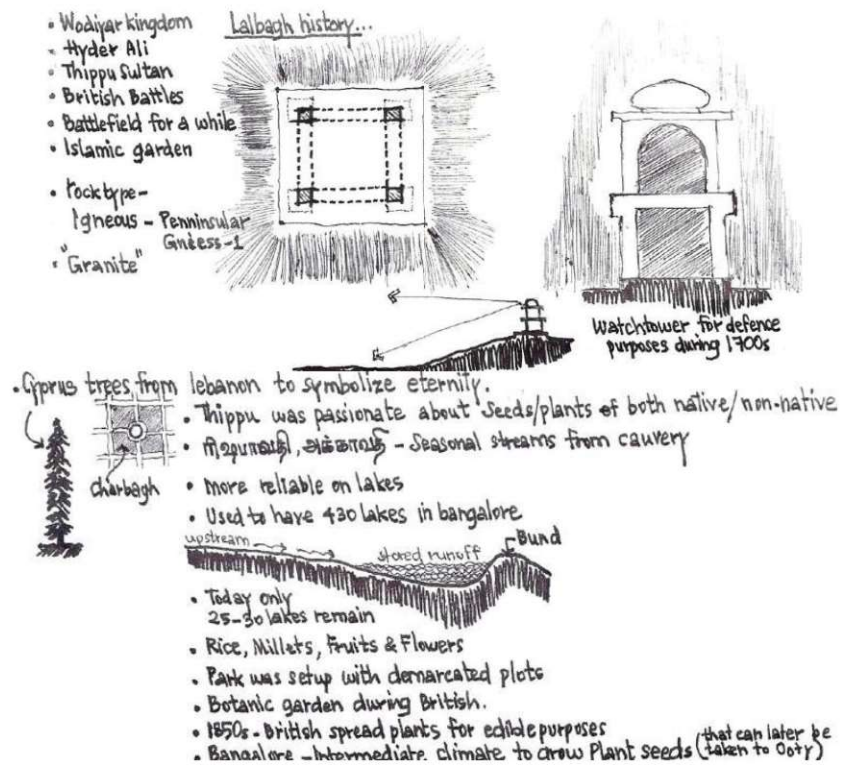 Lalbagh history...
• Wodiyar kingdom
• Hyder Ali
• Thippu Sultan
• British Battles
• Battlefield for a while
• Islamic garden
• Rock type-
Igneous - Penninsular
Gneess-1
• "Granite"
Watchtower for defence
purposes during 1700s
• Cyprus trees from lebanon to symbolize eternity.
charbagh
• Thippu was passionate about seeds/plants of both native/non-native
• - Seasonal streams from cauvery
• more reliable on lakes
• Used to have 430 lakes in bangalore
upstream
stored runoff
Bund
• Today only
25-30 lakes remain
• Rice, Millets, Fruits & Flowers
• Park was setup with demarcated plots
• Botanic garden during British.
• 1850s - British spread plants for edible purposes
• Bangalore - Intermediate climate to grow Plant seeds (that can later be
taken to Ooty)